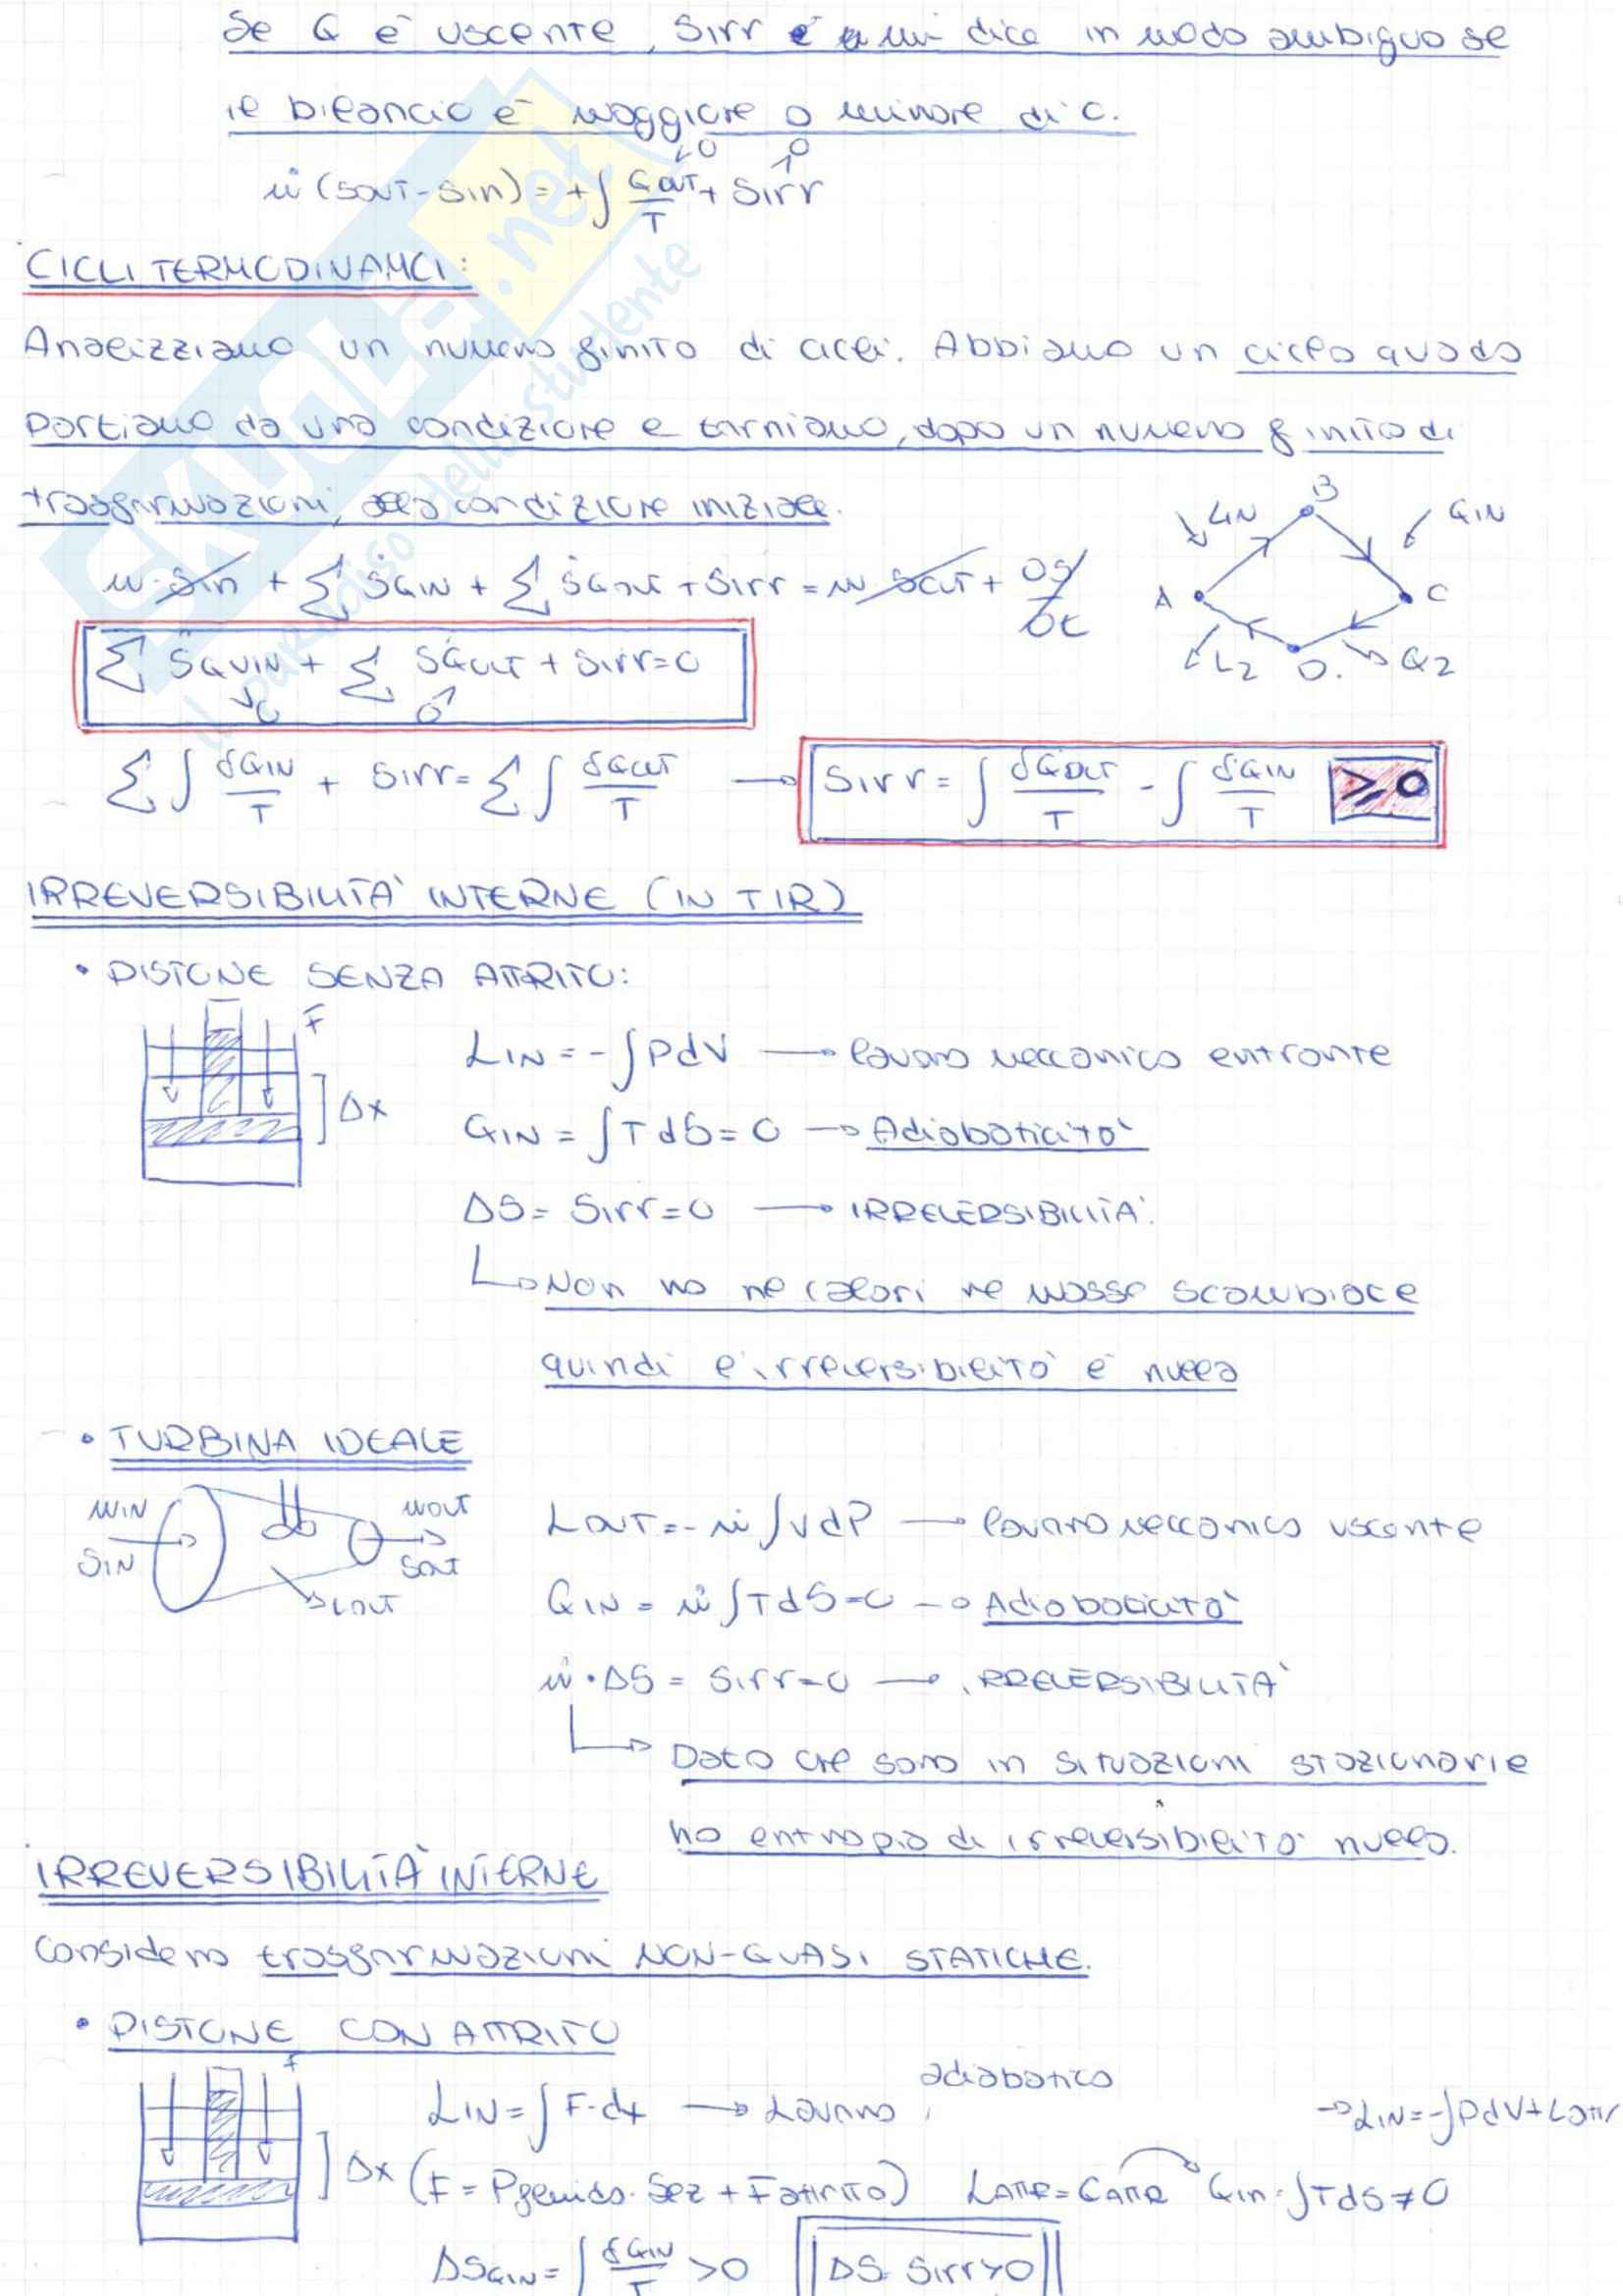 Se Q è uscente, Sirr è mi dice in modo ambiguo se
il bilancio è maggiore o minore di 0.
<0 ↑0
ṁ (sout-sin) = +∫ Qout/T + Sirr
CICLI TERMODINAMCI:
Analizziamo un numero finito di cicli. Abbiamo un ciclo quado
partiamo da una condizione e torniamo, dopo un numero finito di
trasformazioni, alla condizione iniziale.
LIN B QIN
A C
L2 D. Q2
m·Sin + Σ SQIN + Σ SQout + Sirr = m Sout + DS/Dt
Σ SQVIN + Σ SQout + Sirr=0
Σ ∫ δQIN/T + Sirr = Σ ∫ δQout/T → Sirr = ∫ δQout/T - ∫ δQIN/T ≥0
IRREVERSIBILITÀ INTERNE (IN TIR)
• PISTONE SENZA ATTRITO:
F
Δx
LIN = -∫PdV → lavoro meccanico entrante
QIN = ∫TdS = 0 → Adiabaticità
ΔS = Sirr=0 → IRREVERSIBILITÀ.
↳ Non ho ne calori ne masse scambiate
quindi l'irreversibilità è nulla
• TURBINA IDEALE
mIN mout
SIN Sout
Lout
Lout = -ṁ ∫vdP → lavoro meccanico uscente
QIN = ṁ ∫TdS=0 → Adiabaticità
ṁ·ΔS = Sirr=0 → IRREVERSIBILITÀ
↳ Dato che sono in situazioni stazionarie
ho entropia di irreversibilità nulla.
IRREVERSIBILITÀ INTERNE
Considero trasformazioni NON-QUASI STATICHE.
• PISTONE CON ATTRITO
F
Δx
adiabatico
LIN = ∫F·dx → Lavoro → LIN=-∫PdV+Lattr
(F = Pfluido·Sez + Fattrito) LATTR=QATTR Qin=∫TdS≠0
ΔSQIN = ∫ δQIN/T >0 ΔS=Sirr>0
SKUOLA.net
il paradiso dello studente